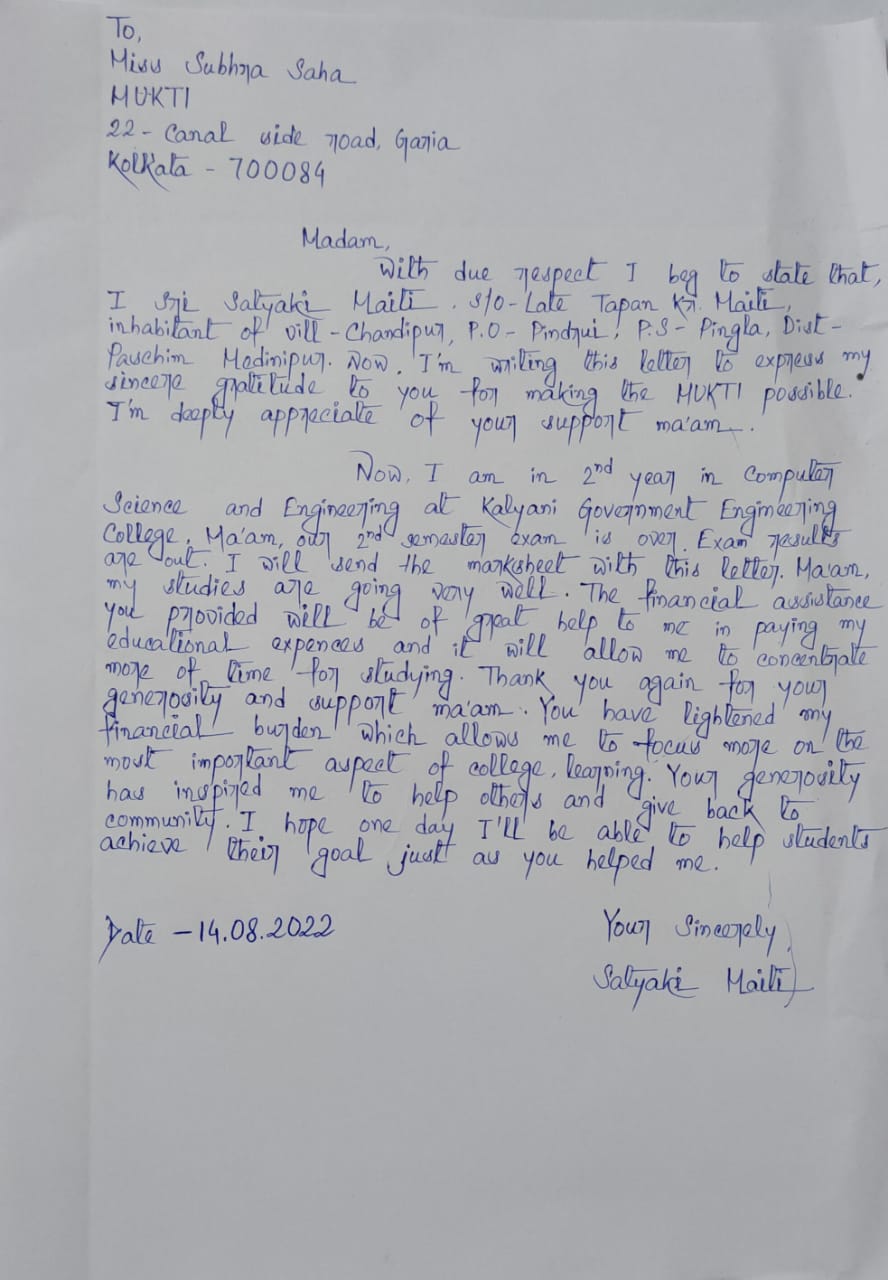 To,
Miss Subhra Saha
MUKTI
22 - Canal side road, Garia
Kolkata - 700084
Madam,
With due respect I beg to state that,
I Sri Satyaki Maiti. S/O - Late Tapan Kr. Maiti,
inhabitant of Vill - Chandipur, P.O - Pindrui, P.S - Pingla, Dist -
Paschim Medinipur. Now, I'm writing this letter to express my
sincere gratitude to you for making the MUKTI possible.
I'm deeply appreciate of your support ma'am.
Now, I am in 2nd year in Computer
Science and Engineering at Kalyani Government Engineering
College. Ma'am, our 2nd semester exam is over. Exam results
are out. I will send the marksheet with this letter. Ma'am,
my studies are going very well. The financial assistance
you provided will be of great help to me in paying my
educational expences and it will allow me to concentrate
more of time for studying. Thank you again for your
generosity and support ma'am. You have lightened my
financial burden which allows me to focus more on the
most important aspect of college, learning. Your generosity
has inspired me to help others and give back to
community. I hope one day I'll be able to help students
achieve their goal just as you helped me.
Date - 14.08.2022
Your Sincerely,
Satyaki Maiti